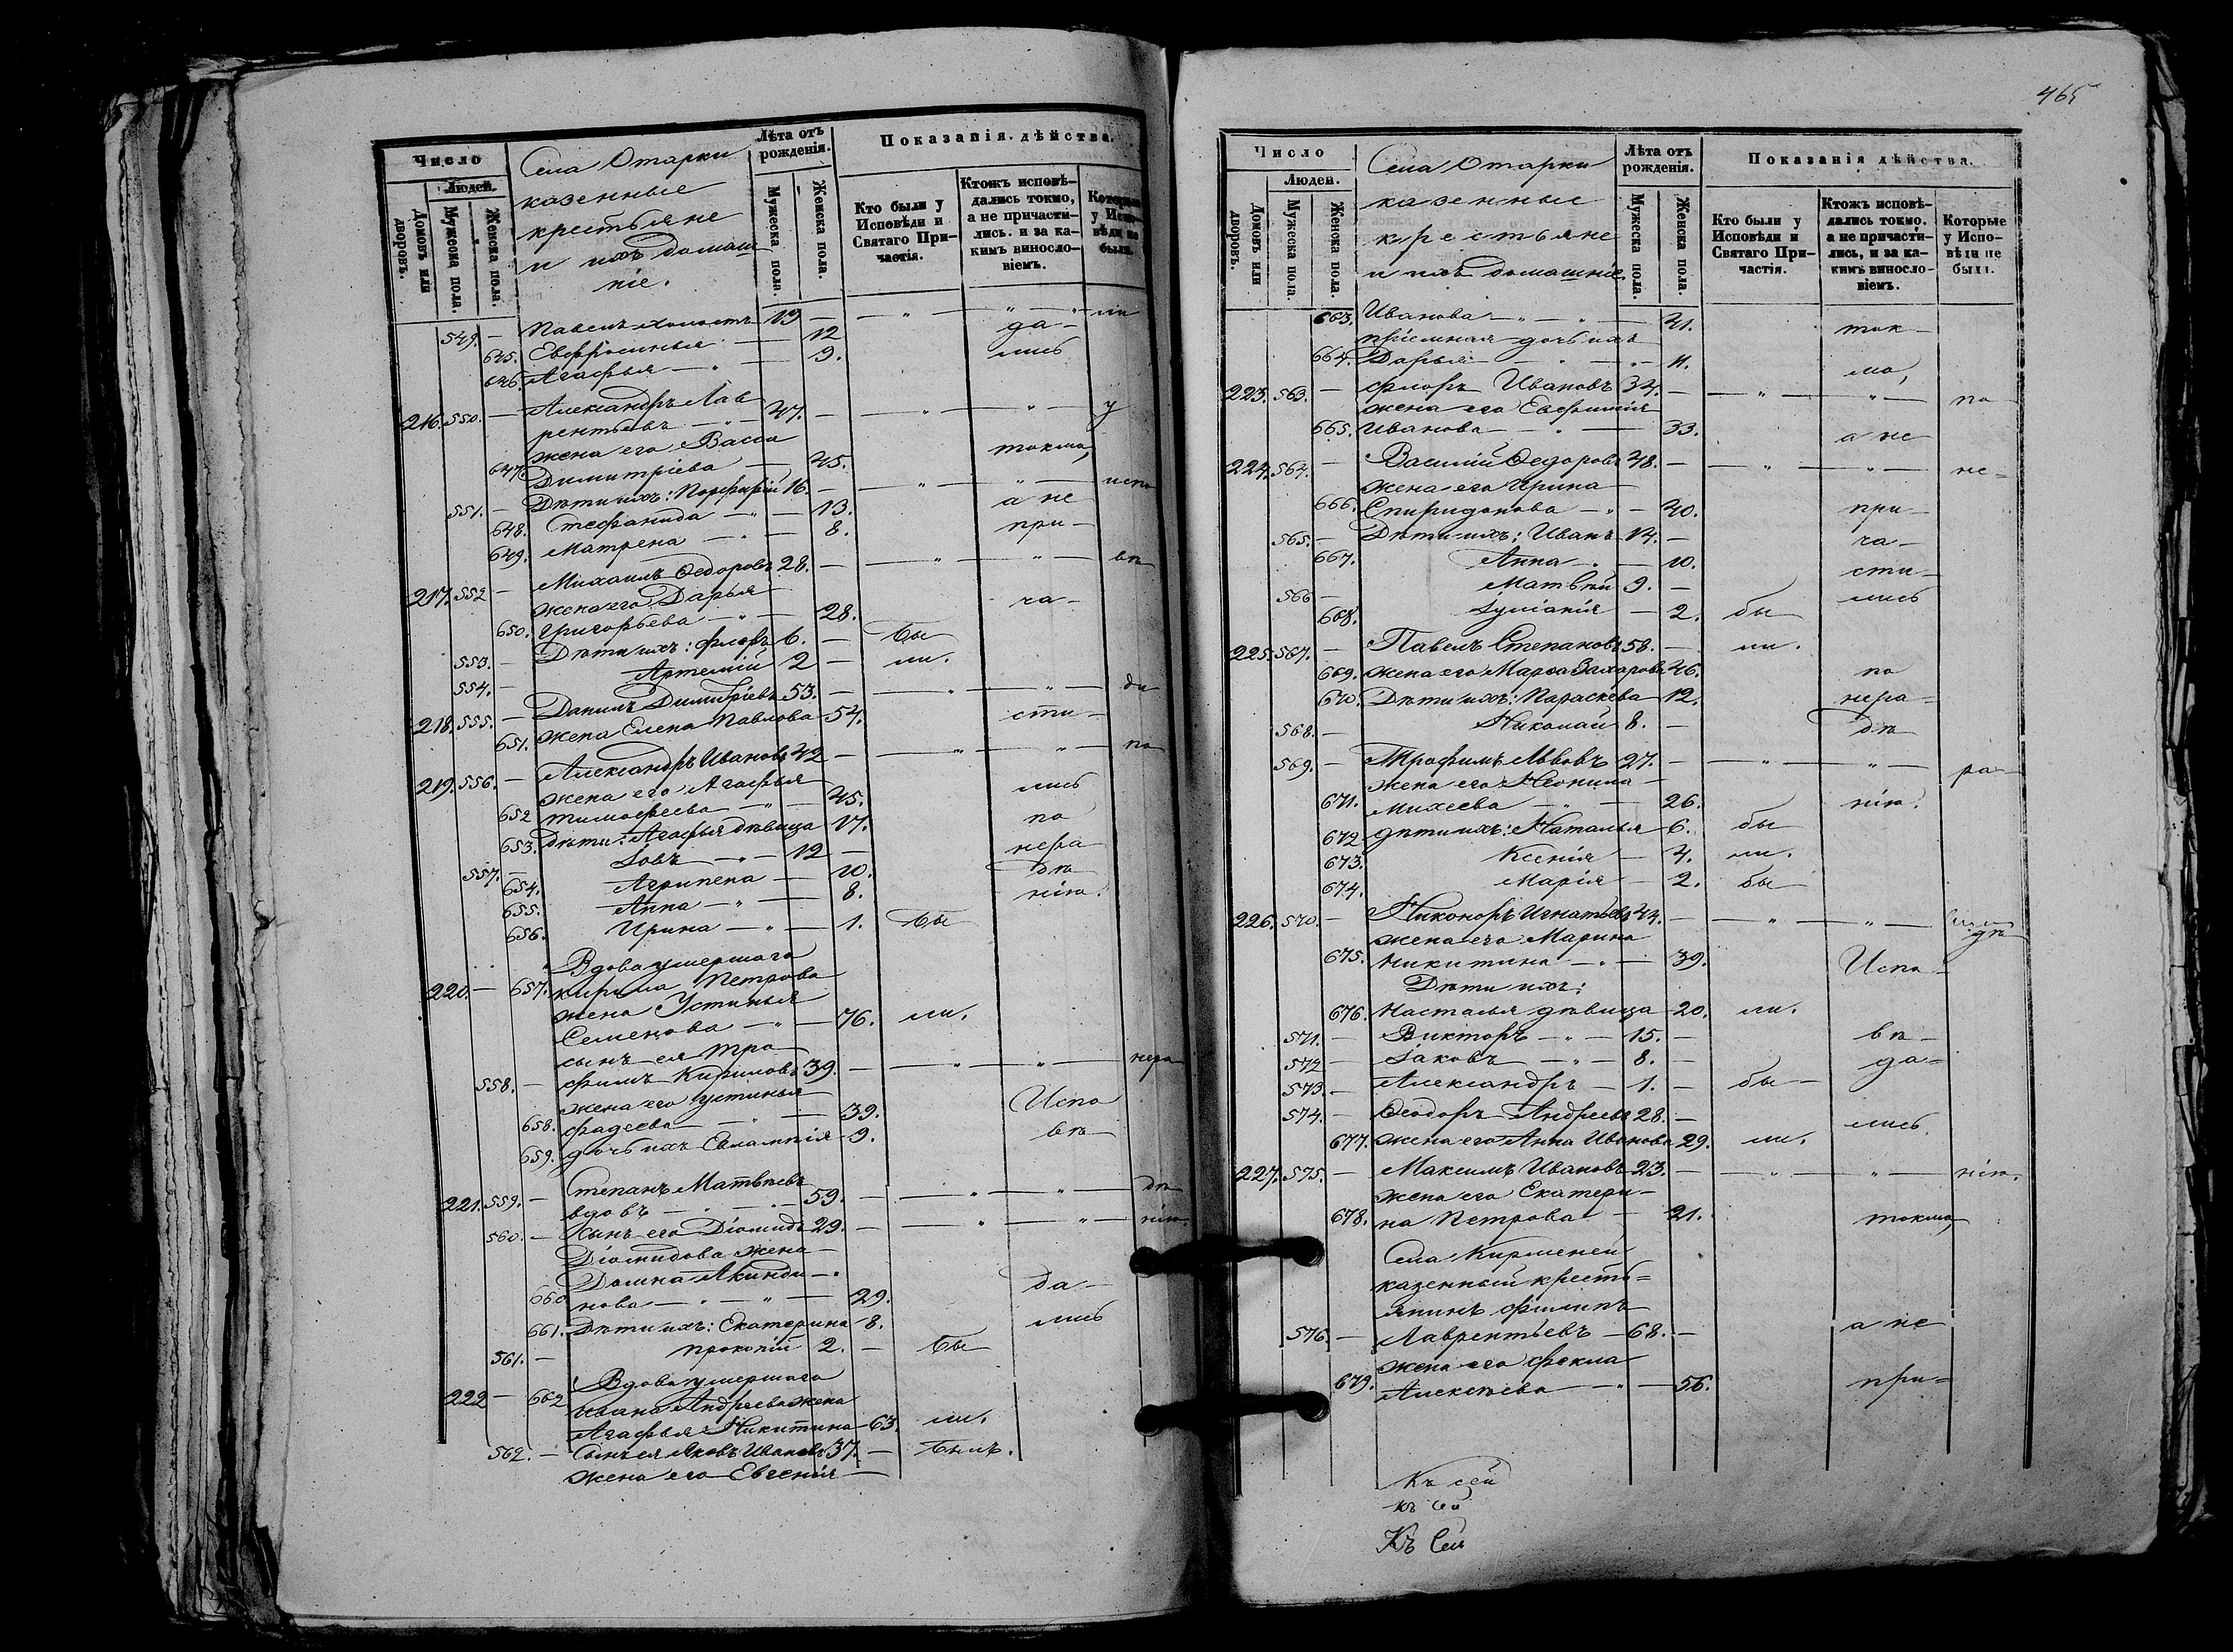 Число
Людей.
Домовъ или дворовъ.
Мужеска пола.
Женска пола.
Села Отарки
казенные
крестьяне
и ихъ домаш
ніе.
Лѣта отъ рожденія.
Мужеска пола.
Женска пола.
Показанія дѣйства.
Кто были у Исповѣди и Святаго Причастія.
Ктожъ исповѣдались токмо, а не причастились. и за какимъ винословіемъ.
Которые у Исповѣди не были.
549. — Павелъ холостъ 19 — " — " — ли
645. Евфросинья — 12 да-
646. Агафья — " — 9. лись
216. 550. — Александръ Лав
рентьевъ — " — 47. — " — " — у
жена его Васса
647. Димитріева — 45. токмо,
551. — Дѣти ихъ: Порфирій 16. — " — " — испо
648. Стефанида — " — 13. а не
649. Матрена — " — 8. при-
217. 552 — Михаилъ Ѳедоровъ 28. — " — " — вѣ
жена его Дарья
650. Григорьева — " — 28. ча-
553. — Дѣти ихъ: Флоръ 6. — бы
554. — Артемій 2 — ли.
218. 555. — Данилъ Димитріевъ 53. — " — " — ди
651. жена Елена Павлова 54. сти-
219. 556. — Александръ Ивановъ 42 — " — " — по
жена его Агафья
652 Тимофеева — " — 45. лись
653. Дѣти: Агафья дѣвица 17. по
557. — Іовъ — " — 12 — нера
654. Агрипена — 10. дѣ
655. Анна — " — 8. нію.
656. Ирина — " — 1. бы
Вдова умершаго
220. — 657. Кирила Петрова
жена Устинья
Семенова — " — 76. ли.
сынъ ея Тро
558. — фимъ Кириловъ 39. — " — " — нера
жена его Устинья
658. Фадеева — " — 39. Испо
659. дочь ихъ Евлампія 9. вѣ
Степанъ Матвѣевъ
221. 559. — вдовъ — " — " — 59. — " — " — дѣ
560. — Сынъ его Діомидъ 29. — " — " — нію.
Діомидова жена
Домна Акинди-
660 нова — " — " — 29. да-
661. Дѣти ихъ: Екатерина 8. лись
561. — Прокопій 2. — бы
Вдова умершаго
222 — 662 Ивана Андреева жена
Агафья Никитина 63. ли.
562. — Сынъ ея Яковъ Ивановъ 37. — былъ.
жена его Евгенія
465
Число
Людей.
Домовъ или дворовъ.
Мужеска пола.
Женска пола.
Села Отарки
казенные
крестьяне
и ихъ домашніе.
Лѣта отъ рожденія.
Мужеска пола.
Женска пола.
Показанія дѣйства.
Кто были у Исповѣди и Святаго Причастія.
Ктожъ исповѣдались токмо. а не причастились, и за какимъ винословіемъ.
Которые у Исповѣди не были.
663. Иванова — " — " — 41. ток-
пріемная дочь ихъ
664. Дарья — " — " — 11. мо,
223. 563. — Флоръ Ивановъ 34. — " — " — по
жена его Евфимія
665. Иванова — " — 33. а не
224. 564. — Василій Ѳедоровъ 48. — " — " — не-
жена его Ирина
666. Спиридонова — " — 40. при-
565. — Дѣти ихъ: Иванъ 14. — ча-
667. Анна — " — 10. сти-
566 — Матвѣй 9. — лись
668. Іуліанія — 2. бы
225. 567. — Павелъ Степановъ 58. — ли.
669. жена его Марѳа Захарова 46. по
670. Дѣти ихъ: Параскева 12. нера-
568. — Николай 8. — дѣ
569. — Трофимъ Львовъ 27. — " — " — ра-
жена его Неонила
671. Михеева — " — 26. нію.
672 дѣти ихъ: Наталья 6. бы
673. Ксенія — 4. ли.
674. Марія — 2. бы
226. 570. — Никоноръ Игнатьевъ 44. — " — " — дѣ
жена его Марина
675. Никитина — " — 39. Испо-
Дѣти ихъ:
676. Насталья дѣвица 20. ли.
571. — Викторъ — " — 15. — вѣ-
572 — Іаковъ — " — 8. — да-
573. — Александръ — 1. — бы-
574. — Ѳеодоръ Андреевъ 28. — лись
677. жена его Анна Иванова 29. ли.
227. 575. — Максимъ Ивановъ 23. — " — " — нію.
жена его Екатери-
678. на Петрова — 21. токмо,
Села Кирменей
казенный кресть=
янинъ Филипъ
576. — Лаврентьевъ — 68. — а не
жена его Фекла
679. Алексѣева — " — 56. при=
Къ сей
къ сей
Къ Сей